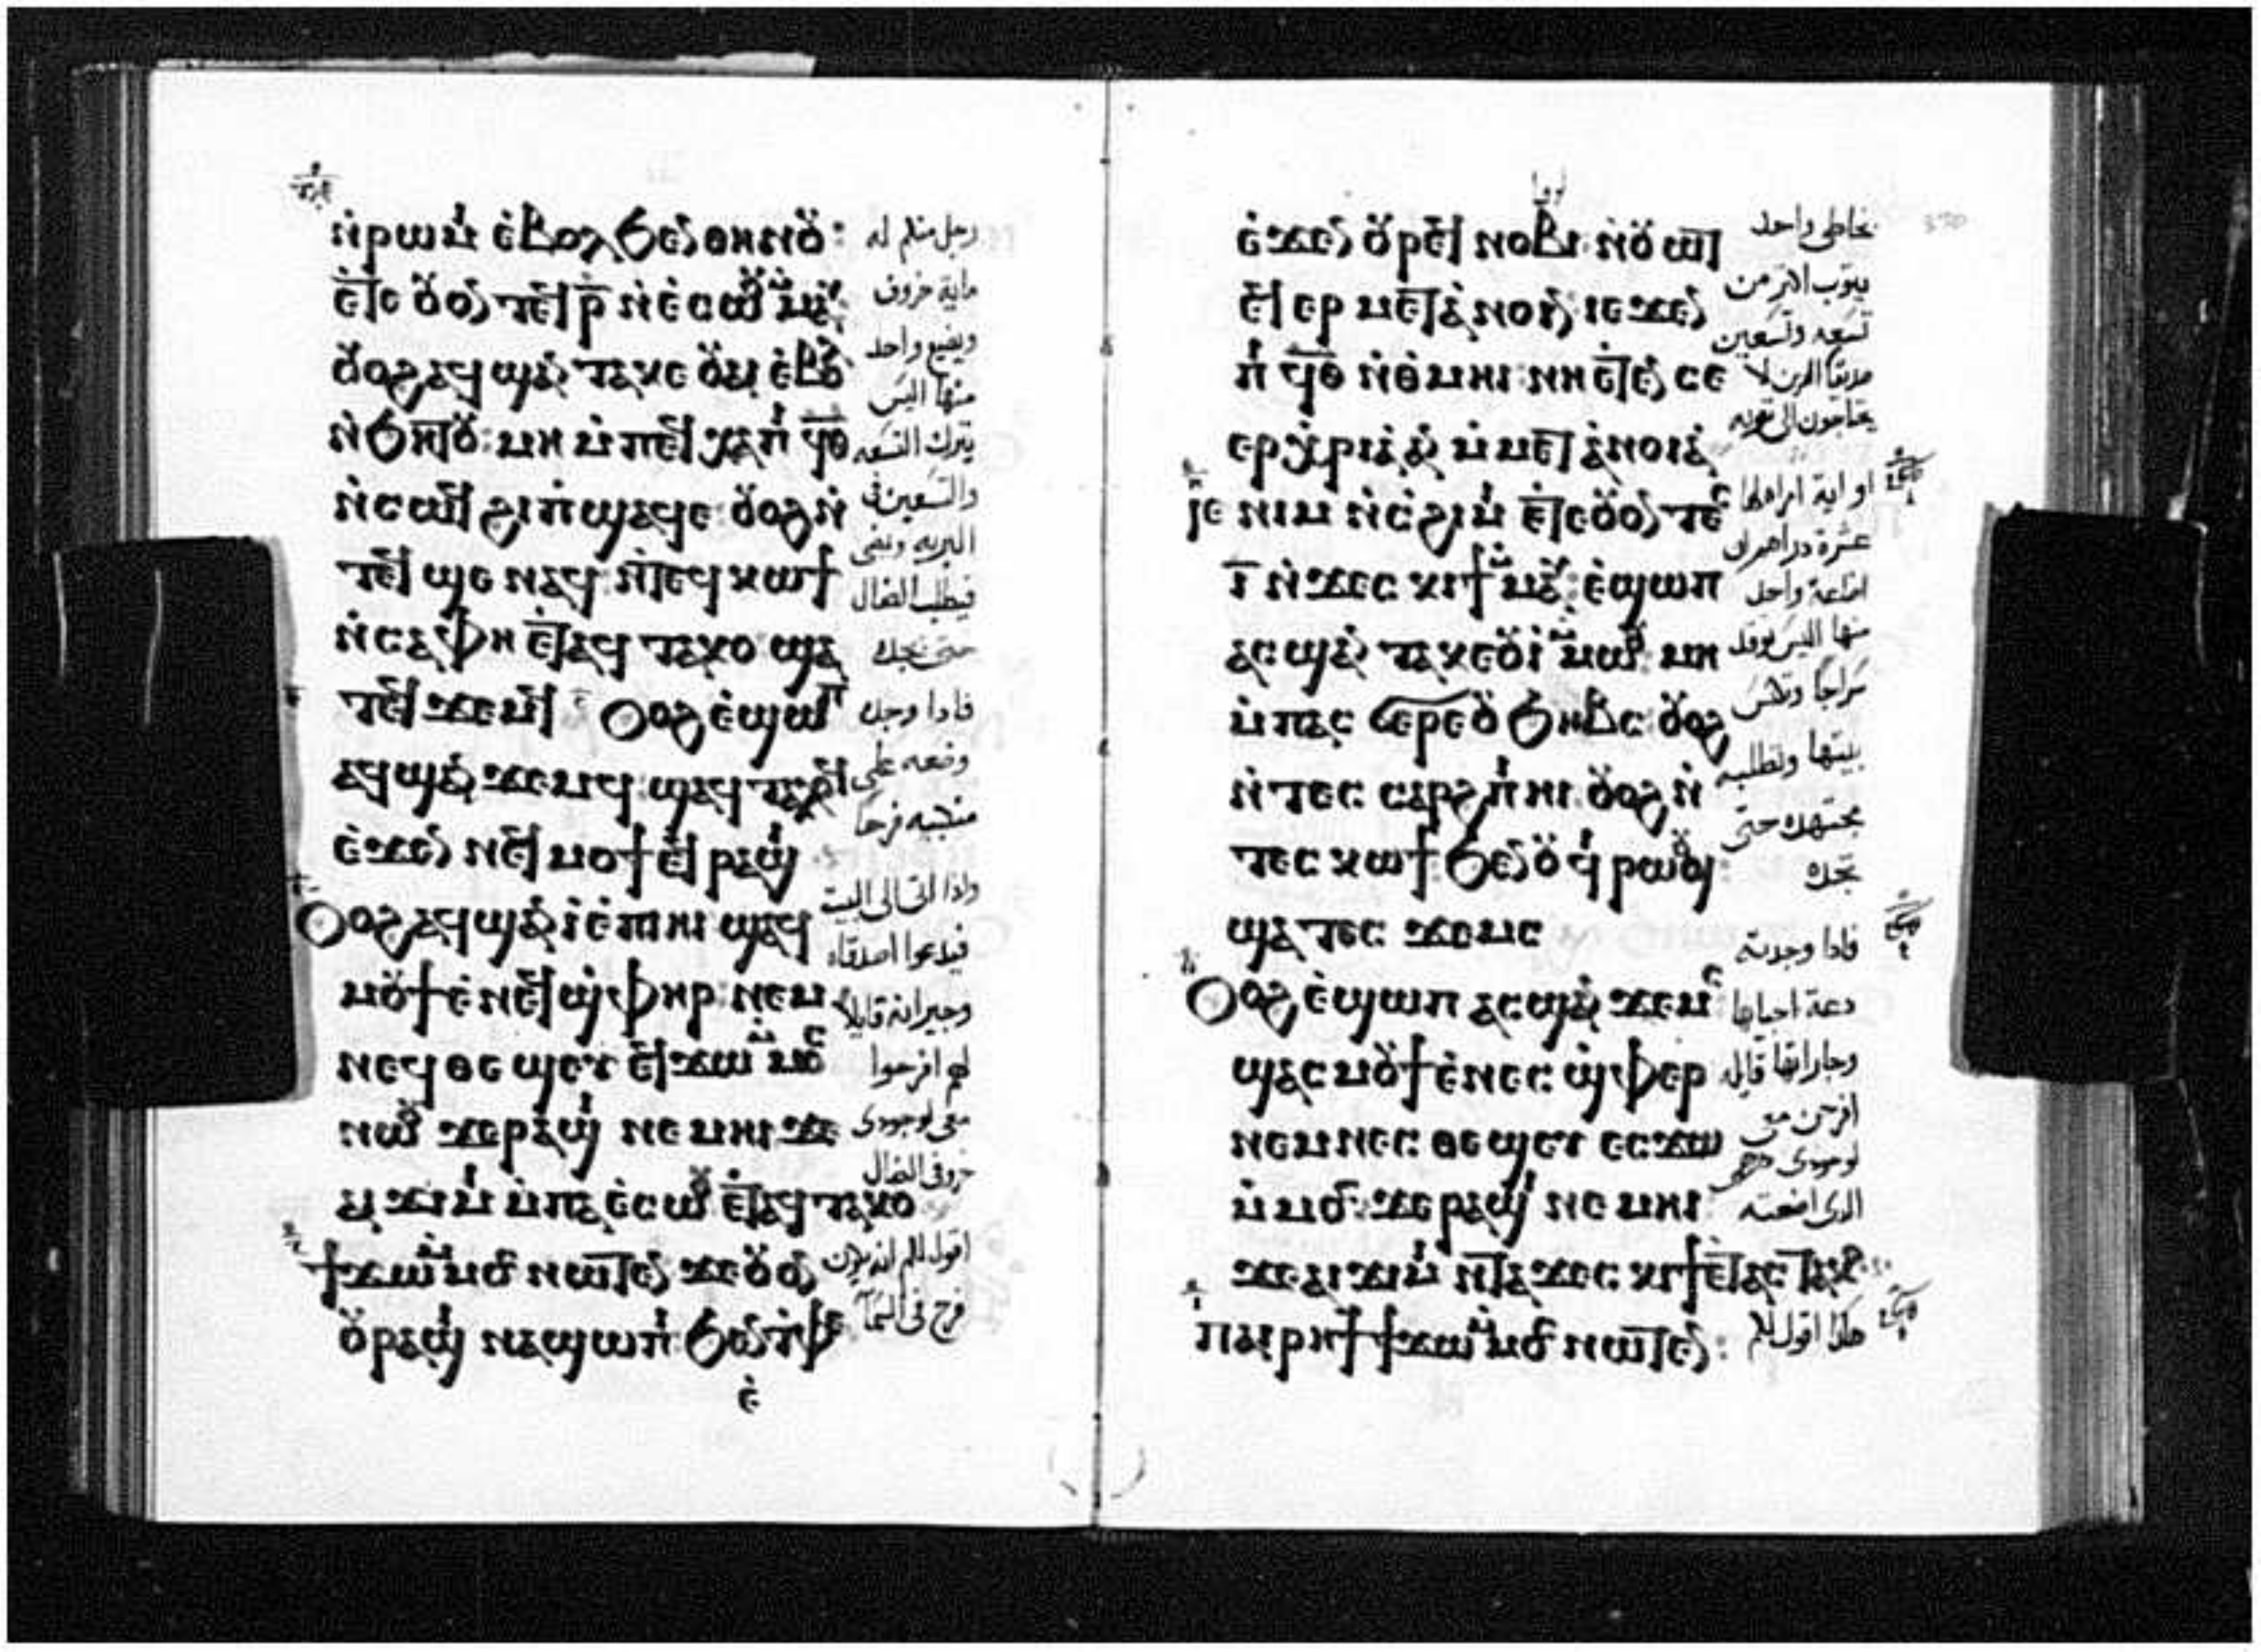 ⲛ̀ⲣⲱⲙⲓ ⲉ̀ⲃⲟⲗ ϧⲉⲛ ⲑⲏⲛⲟⲩ:
ⲉ̀ⲧⲉ ⲟⲩⲟⲛ ⲧⲉϥ ⲣ̅ ⲛ̀ⲉ̀ⲥⲱⲟⲩ ⲙ̀ⲙⲁⲩ:
ⲟⲩⲟϩ ⲁϥϣⲁⲛ ⲧⲁⲕⲉ ⲟⲩⲁⲓ ⲉ̀ⲃⲟⲗ
ⲛ̀ϧⲏⲧⲟⲩ: ⲙⲏ ⲙ̀ⲡⲉϥ ⲭⲁⲡⲓ ϥ̅ⲑ̅
ⲛ̀ⲥⲱⲟⲩ ϩⲓ ⲡ̀ϣⲁϥⲉ: ⲟⲩⲟϩ ⲛ̀
ⲧⲉϥ ϣⲉ ⲛⲁϥ: ⲛ̀ⲧⲉϥ ⲕⲱϯ
ⲛ̀ⲥⲁ ⲫⲏ ⲉ̀ⲧⲁϥ ⲧⲁⲕⲟ ϣⲁ
ⲧⲉϥ ϫⲉⲙϥ Ⲟⲩⲟϩ ⲉ̀ϣⲱⲡ
ⲁϥϣⲁⲛ ϫⲉⲙϥ: ϣⲁϥ ⲧⲁⲗⲟϥ
ⲉ̀ϫⲉⲛ ⲛⲉϥ ⲙⲟϯ ⲉϥ ⲣⲁϣⲓ
Ⲟⲩⲟϩ ⲁϥϣⲁⲛ ⲓ̀ ⲉ̀ⲡⲓⲏⲓ ϣⲁϥ
ⲙⲟⲩϯ ⲉ̀ⲛⲉϥ ϣ̀ⲫⲏⲣ: ⲛⲉⲙ
ⲛⲉϥ ⲑⲉ ϣⲉⲩ ⲉϥϫⲱ ⲙ̀ⲙⲟⲥ
ⲛⲱⲟⲩ ϫⲉ ⲣⲁϣⲓ ⲛⲉⲙⲏⲓ ϫⲉ
ⲁⲓ ϫⲓⲙⲓ ⲙ̀ⲡⲁ ⲉ̀ⲥⲱⲟⲩ ⲉ̀ⲧⲁϥ ⲧⲁⲕⲟ
ϯϫⲱ ⲙ̀ⲙⲟⲥ ⲛⲱⲧⲉⲛ ϫⲉ ⲟⲩⲟⲛ
ⲟⲩⲣⲁϣⲓ ⲛⲁϣⲱⲡⲓ ϧⲉⲛ ⲧ̀ⲫⲉ
ⲉ̀
رجل منكم له
ماية خروف
ويضيع واحد
منها اليس
يترك التسعه
والتسعين في
البريه ويمضى
فيطلب الضال
حتى يجده
فاذا وجده
وضعه على
منكبيه فرحا
واذا اتى الى البيت
فيدعوا اصدقاه
وجيرانه قايلا
لهم افرحوا
معى لوجودى
خروفى الضال
اقول لكم انه يكون
فرح فى السما
لوقا
ⲉ̀ϫⲉⲛ ⲟⲩⲣⲉϥ ⲛⲟⲃⲓ ⲛ̀ⲟⲩⲱⲧ
ⲉϥ ⲉⲣ ⲙⲉⲧⲁ̀ⲛⲟⲓⲛ: ⲓⲉ ϫⲉⲛ
ⲡⲓ ϥ̅ⲑ̅ ⲛ̀ⲑ̀ⲙⲏⲓ: ⲛⲏ ⲉ̀ⲧⲉⲛ ⲥⲉ
ⲉⲣⲭ̀ⲣⲓⲁ ⲁⲛ ⲙ̀ⲙⲉⲧⲁ̀ⲛⲟⲓⲁ
ⲓⲉ ⲛⲓⲙ ⲛ̀ⲥ̀ϩⲓⲙⲓ ⲉ̀ⲧⲉ ⲟⲩⲟⲛ ⲧⲉⲥ
ⲓ̅ ⲛ̀ϫⲉⲥ ⲕⲓϯ ⲙ̀ⲙⲁⲩ: ⲉ̀ϣⲱⲡ
ⲁⲥϣⲁⲛ ⲧⲁⲕⲉ ⲟⲩⲓ̀ ⲙ̀ⲙⲱⲟⲩ ⲙⲏ
ⲙ̀ⲡⲁⲥ ϭⲉⲣⲉ ⲟⲩϧⲏⲃⲥ ⲟⲩⲟϩ
ⲛ̀ⲧⲉⲥ ⲥⲁⲣϩ ⲡⲓⲏⲓ ⲟⲩⲟϩ ⲛ̀
ⲧⲉⲥ ⲕⲱϯ ϧⲉⲛ ⲟⲩ ϥⲓ ⲣⲱⲟⲩϣ:
ϣⲁ ⲧⲉⲥ ϫⲉⲙⲥ
Ⲟⲩⲟϩ ⲉ̀ϣⲱⲡ ⲁⲥϣⲁⲛ ϫⲉⲙⲥ
ϣⲁⲥ ⲙⲟⲩϯ ⲉ̀ⲛⲉⲥ ϣ̀ⲫⲉⲣ
ⲛⲉⲙ ⲛⲉⲥ ⲑⲉ ϣⲉⲩ ⲉⲥϫⲱ
ⲙ̀ⲙⲟⲥ: ϫⲉ ⲣⲁϣⲓ ⲛⲉⲙⲏⲓ
ϫⲉ ⲁⲓ ϫⲓⲙⲓ ⲛ̀ⲧⲁ ϫⲉⲥ ⲕⲓϯ ⲉ̀ⲧⲁⲥ ⲧⲁⲕⲟ
ⲡⲁⲓⲣⲏϯ ϯϫⲱ ⲙ̀ⲙⲟⲥ ⲛⲱⲧⲉⲛ:
بخاطى واحد
يتوب اكثر من
تسعه وتسعين
صديقا الذين لا
يحتاجون الى توبه
او اية امراه لها
عشرة دراهم ان
اضاعة واحد
منها اليس توقد
سراجا وتكنس
بيتها وتطلبه
مجتهده حتى
تجده
فاذا وجدته
دعة احبابها
وجاراتها قايله
افرحن معى
لوجودى درهمى
الذى اضعته
هكذا اقول لكم